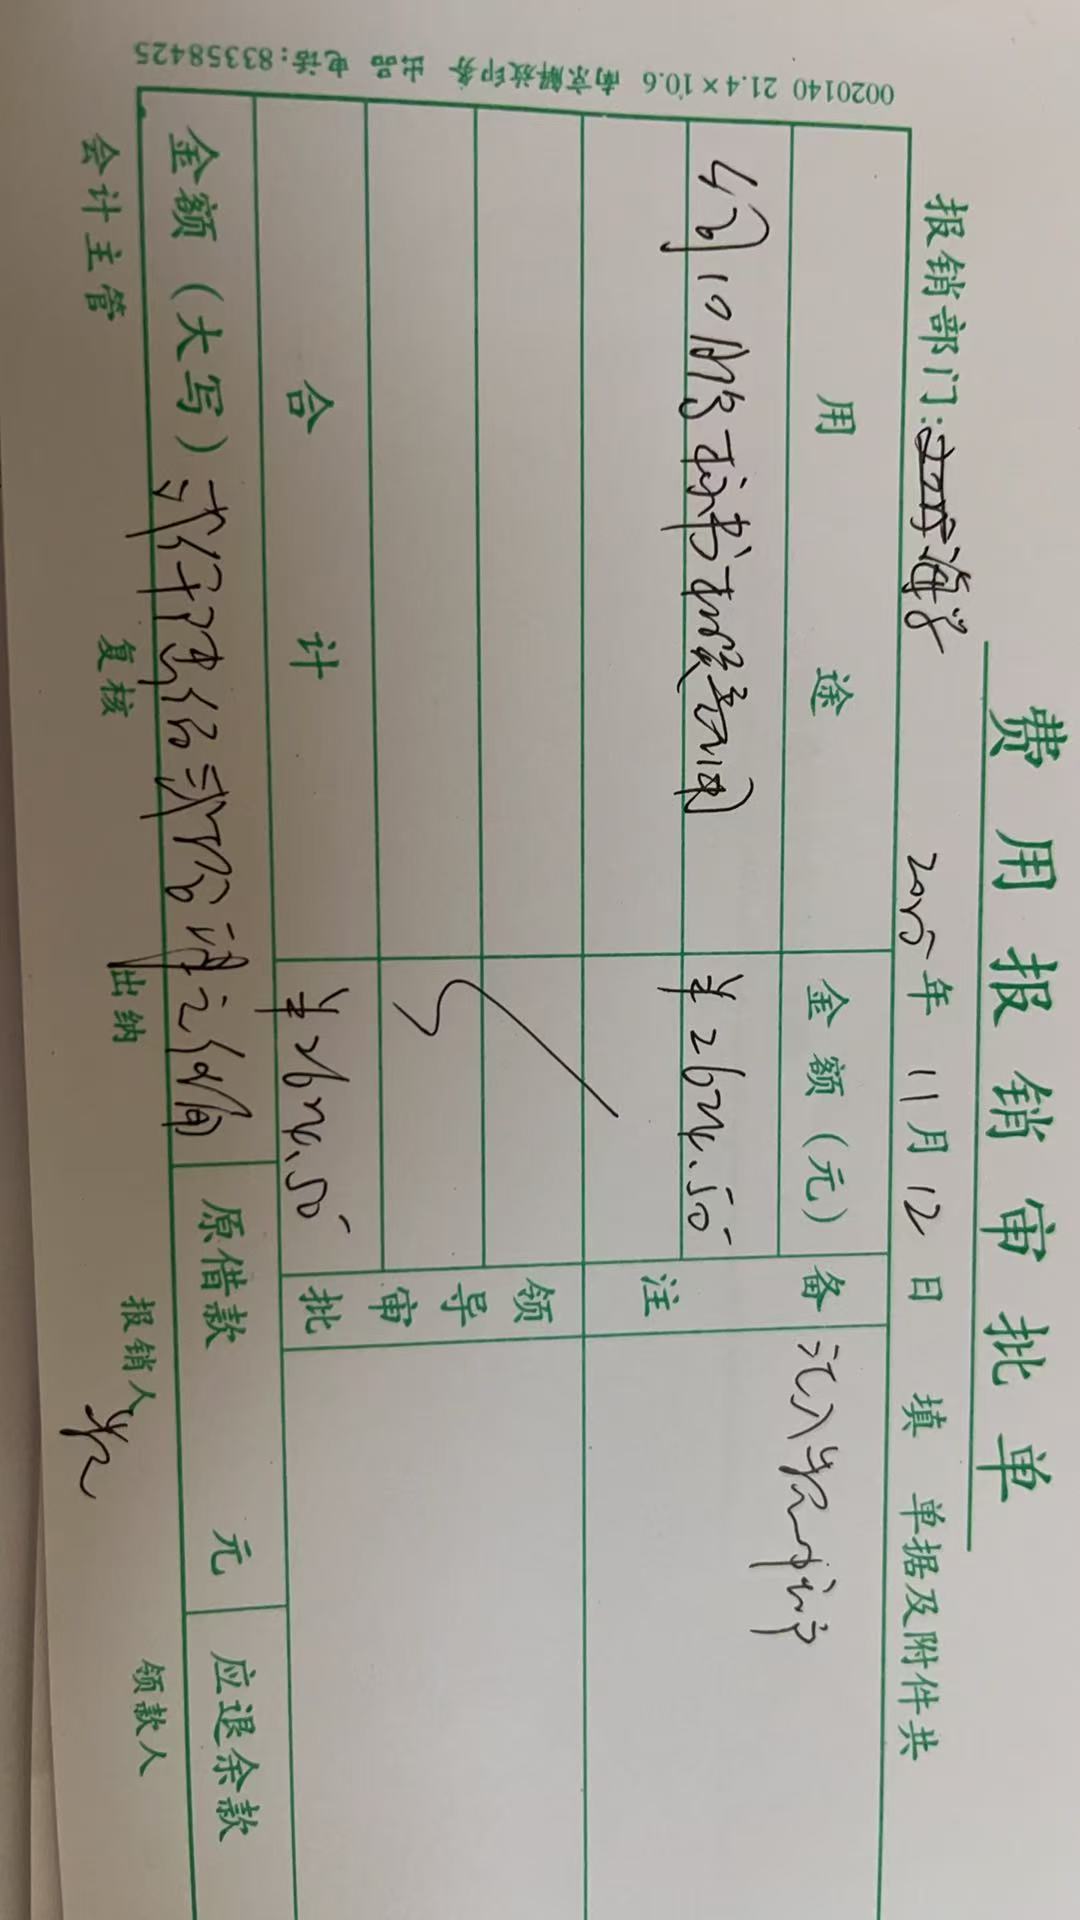 费用报销审批单
报销部门: 年 11月12日 填 单据及附件共
用途 金额(元) 备注
10月 标书 费用 ¥2624.50
领导审批
合计 ¥2624.50
金额(大写)贰仟陆佰贰拾肆元伍角 原借款 元 应退余款
会计主管 复核 出纳 报销人 领款人
0020140 21.4×10.6 南京解放印务 出品 电话:83358425